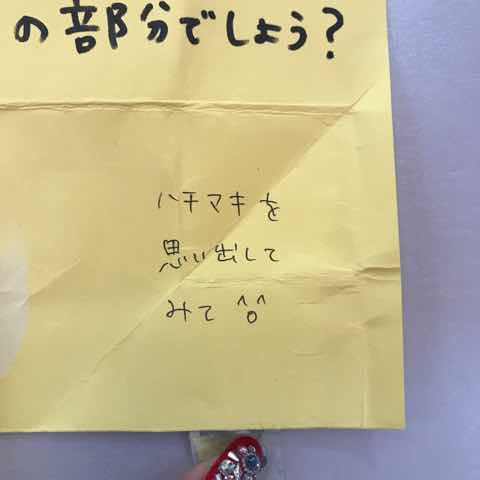 の部分でしょう?
ハチマキを
思い出して
みて ^o^